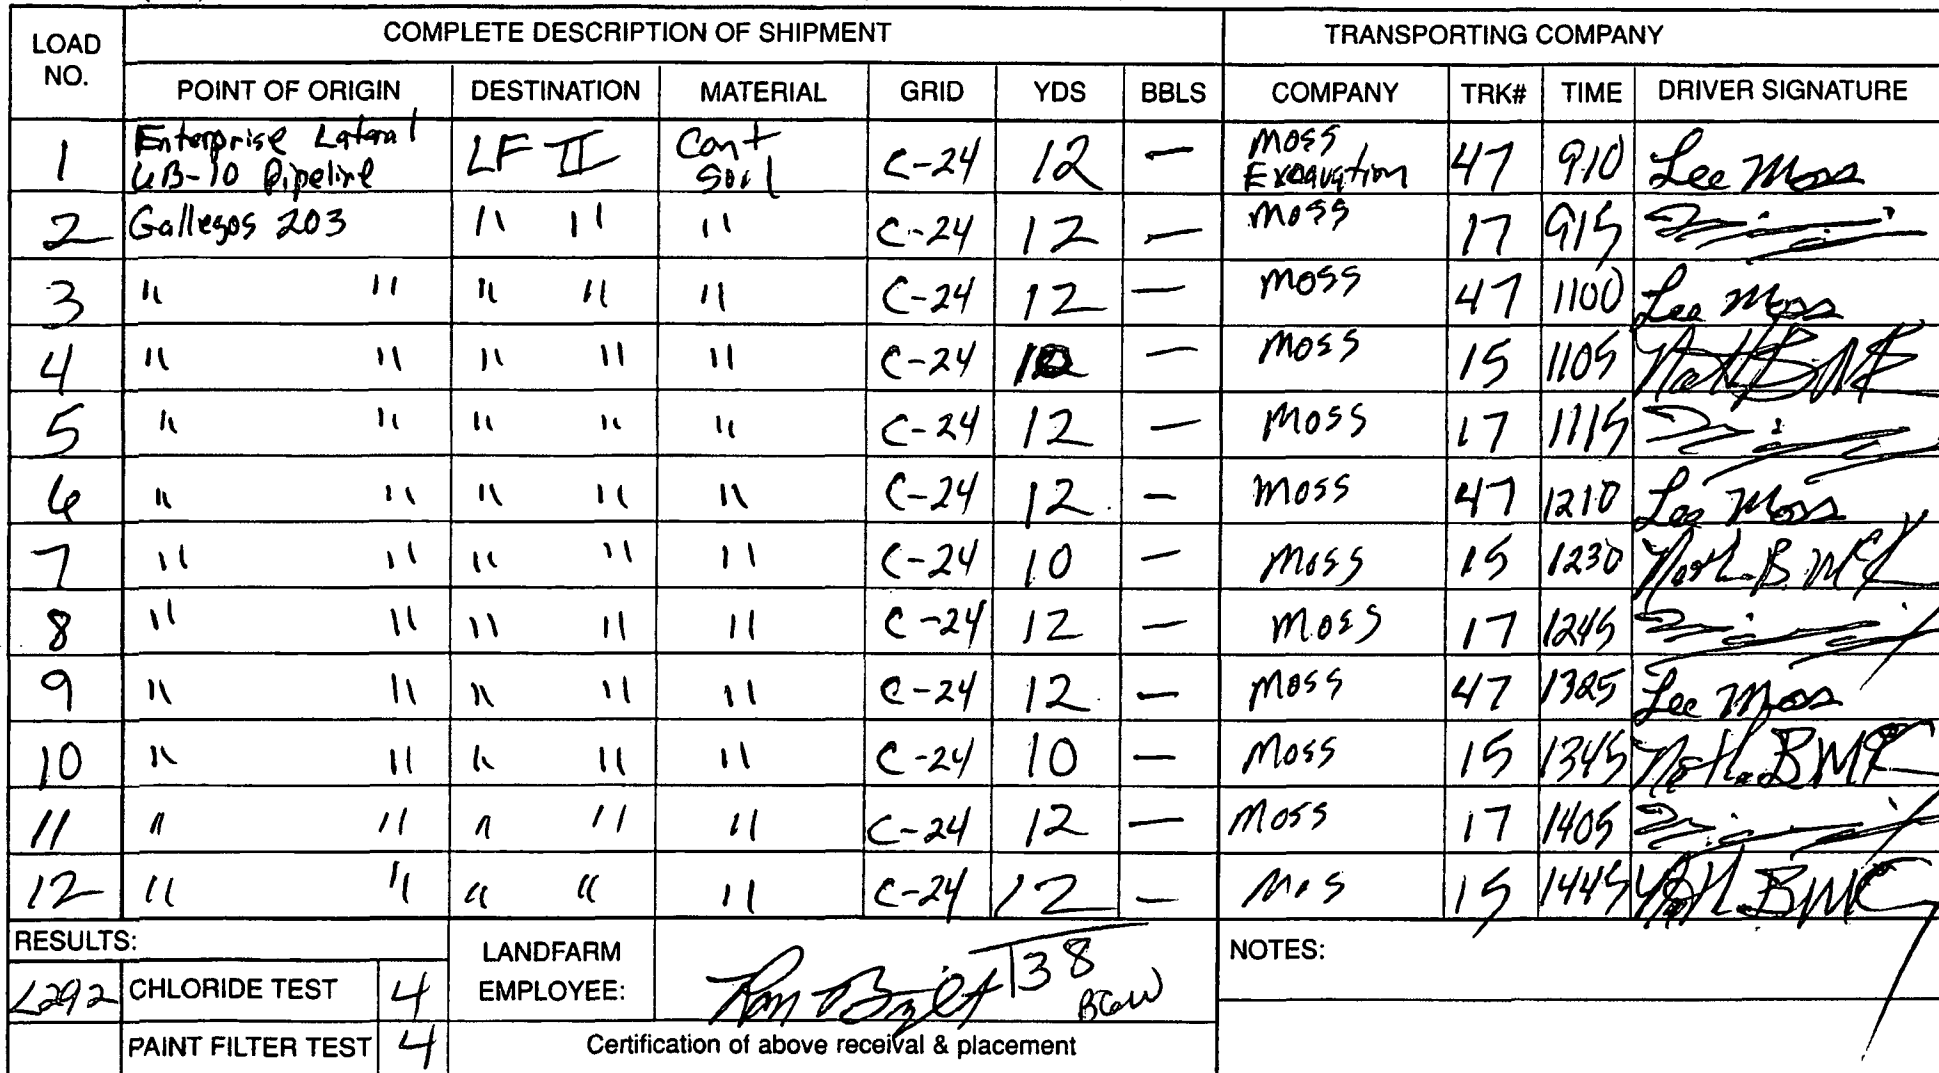 COMPLETE DESCRIPTION OF SHIPMENT TRANSPORTING COMPANY
LOAD NO. POINT OF ORIGIN DESTINATION MATERIAL GRID YDS BBLS COMPANY TRK# TIME DRIVER SIGNATURE
1 Enterprise Lateral LF II Cont C-24 12 — Moss 47 910 Lee Moss
Pipeline Soil
2 Gallegos 203 " " " C-24 12 — Moss 17 915
3 " " " " " C-24 12 — Moss 47 1100 Lee Moss
4 " " " " " C-24 — Moss 15 1105
5 " " " " " C-24 12 — Moss 17 1115
6 " " " " " C-24 12 — Moss 47 1210 Lee Moss
7 " " " " " C-24 10 — Moss 15 1230
8 " " " " " C-24 12 — Moss 17 1245
9 " " " " " C-24 12 — Moss 47 1325 Lee Moss
10 " " " " " C-24 10 — Moss 15 1345
11 " " " " " C-24 12 — Moss 17 1405
12 " " " " " C-24 12 — Mos 15 1445
RESULTS: LANDFARM EMPLOYEE: 138 NOTES:
<292 CHLORIDE TEST 4
PAINT FILTER TEST 4 Certification of above receival & placement